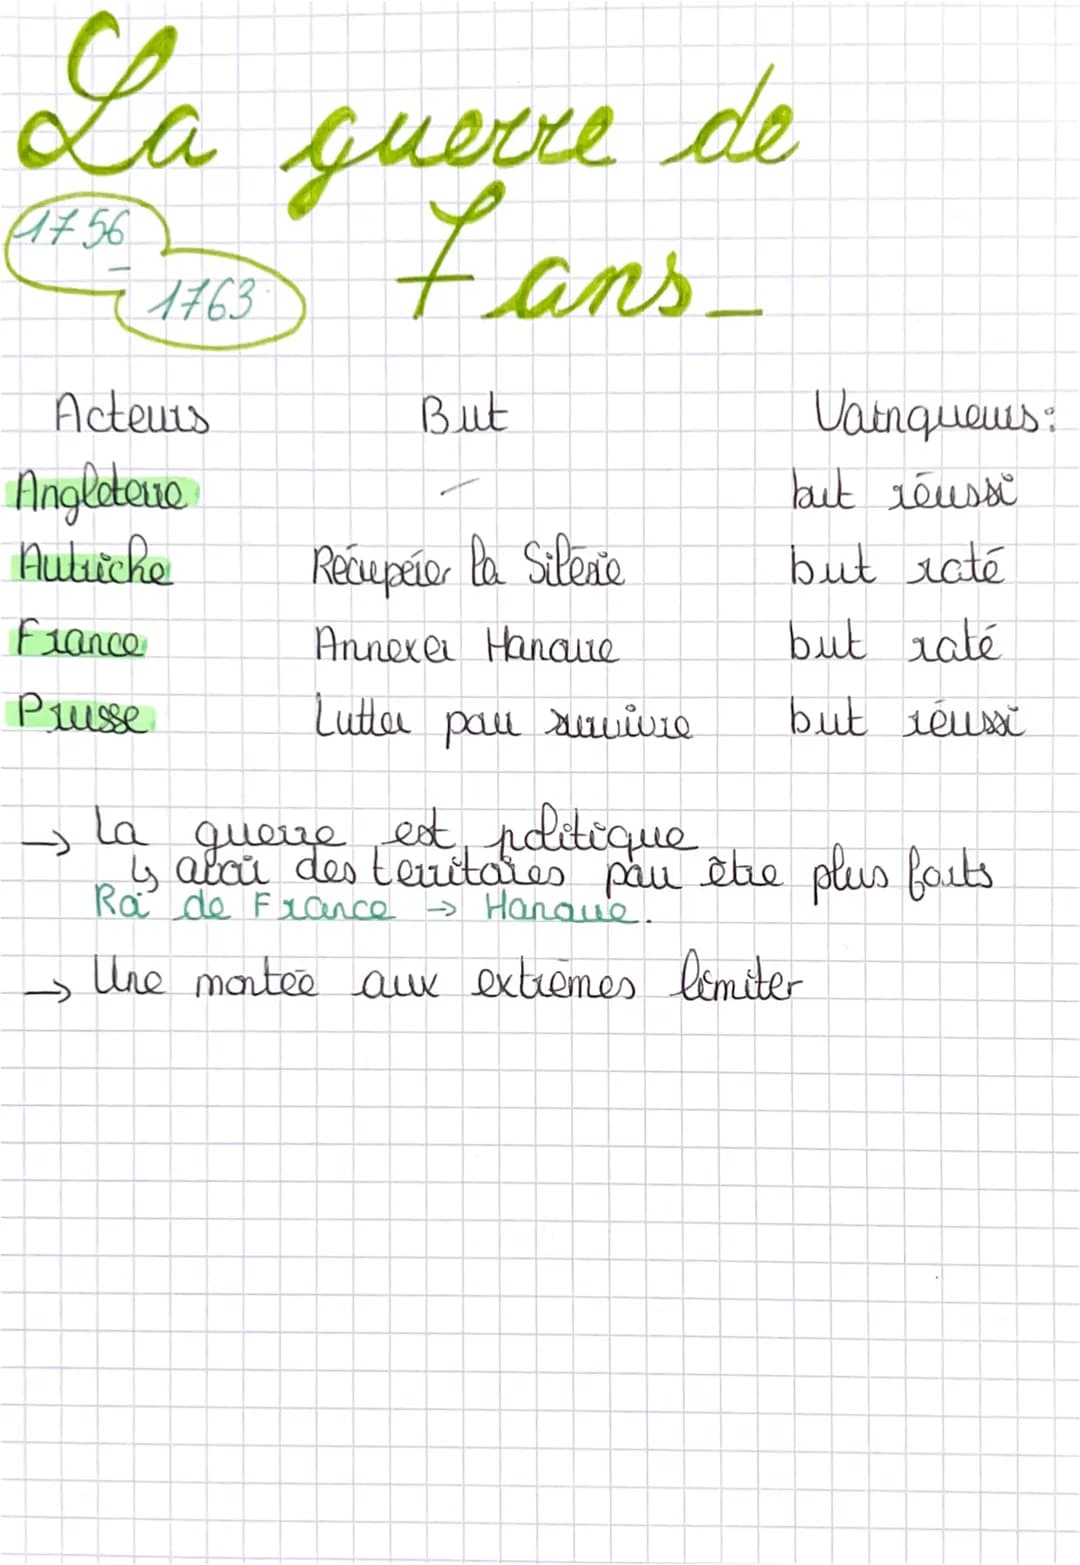 La guerre de
7 ans_
1756
-
1763
Acteurs But Vainqueurs:
Angleterre - but réussi
Autriche Récupérer la Silésie but raté
France Annexer Hanovre but raté
Prusse Lutter pour survivre but réussi
→ La guerre est politique
↳ avoir des territoires pour être plus forts
Roi de France → Hanovre.
→ Une montée aux extrêmes limiter